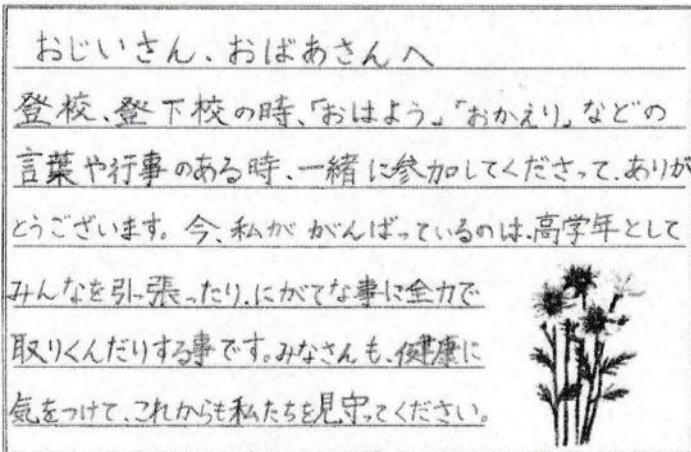 おじいさん、おばあさんへ
登校、登下校の時、「おはよう」「おかえり」などの
言葉や行事のある時、一緒に参加してくださって、ありが
とうございます。今、私ががんばっているのは、高学年として
みんなを引っ張ったり、にがてな事に全力で
取りくんだりする事です。みなさんも、健康に
気をつけて、これからも私たちを見守ってください。